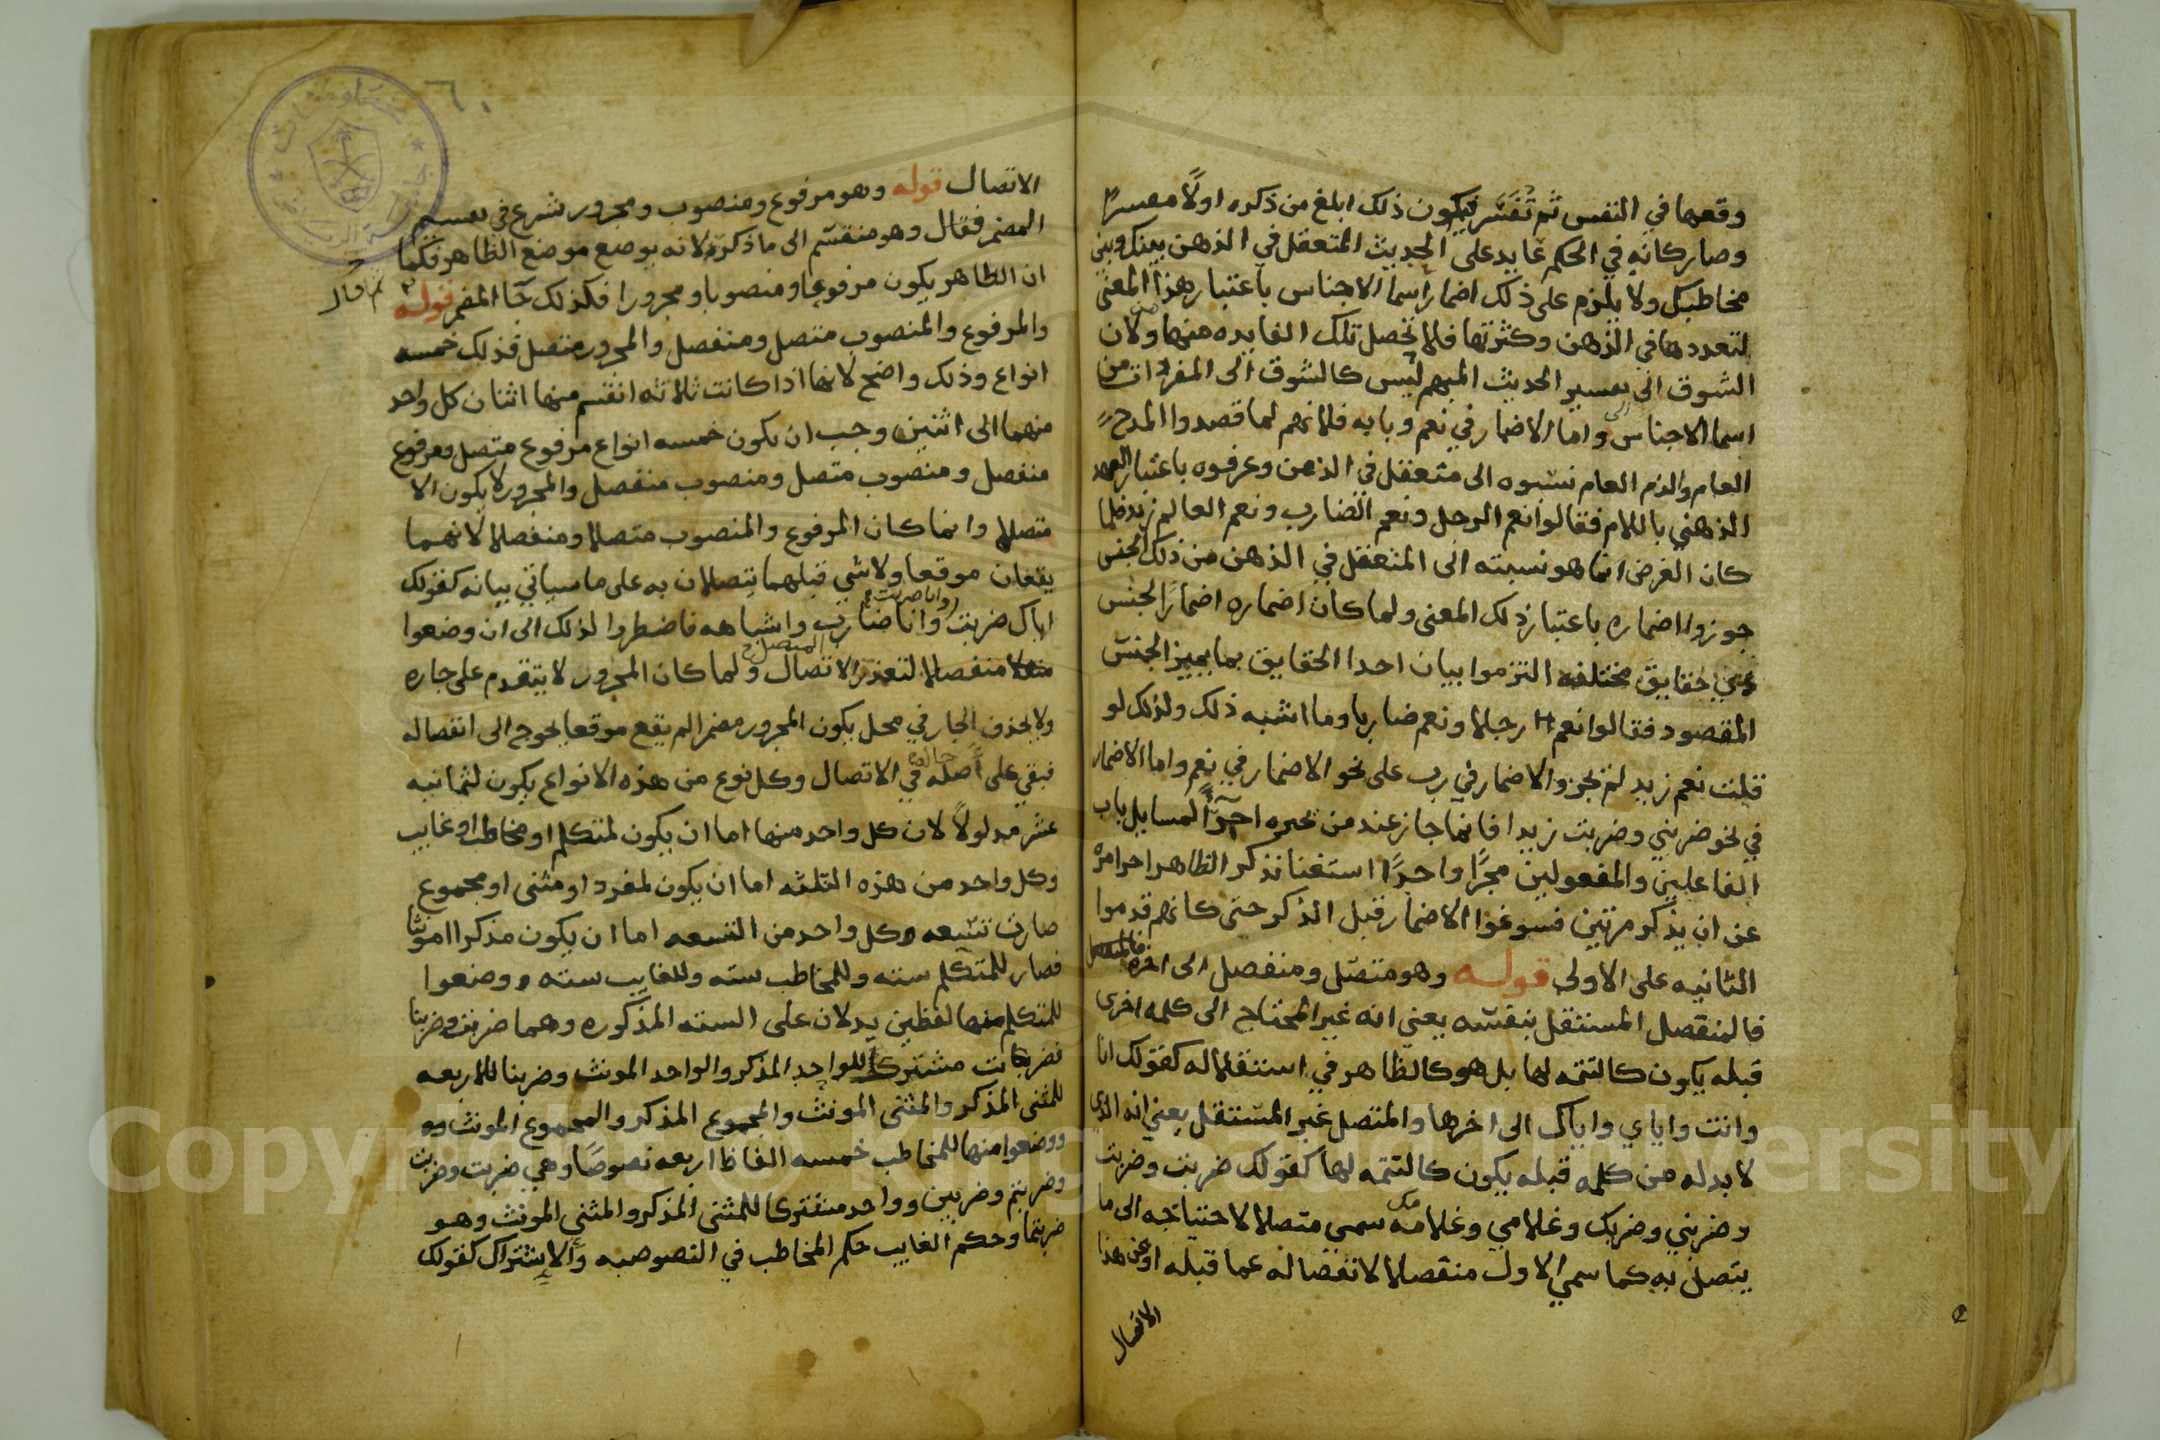 وقعها في النفس ثم تفسر فيكون ذلك ابلغ من ذكره اولا مفسرا
وصار كانه في الحكم عايد على الحديث المتعقل في الذهن بينك وبين
مخاطبك ولا يلزم على ذلك اضمار اسما الاجناس باعتبار هذا المعنى
لتعددها في الذهن وكثرتها فلا تحصل تلك الفايده منها ولان
الشوق الى تفسير الحديث المبهم ليس كالشوق الى المفردات من
اسما الاجناس واما الاضمار في نعم وبابه فلانهم لما قصدوا المدح
العام والذم العام نسبوه الى متعقل في الذهن وعرفوه باعتبار العهد
الذهني باللام فقالوا نعم الرجل ونعم الضارب ونعم العالم زيد فلما
كان الغرض انما هو نسبته الى المتعقل في الذهن من ذلك الجنس
جوزوا اضماره باعتبار ذلك المعنى ولما كان اضماره اضمار الجنس
حقايق مختلفه التزموا بيان احدا الحقايق بما يميز الجنس
المقصود فقالوا نعم رجلا ونعم ضاربا وما اشبه ذلك ولذلك لو
قلت نعم زيد لم يجز والاضمار في رب على نحو الاضمار في نعم واما الاضمار
في نحو ضربني وضربت زيدا فانما جاز عند من المسايل باب
الفاعلين والمفعولين مجرا واحدا استغنا بذكر الظاهر احرا مره
عن ان يذكر مرتين فسوغوا الاضمار قبل الذكر حتى كانهم قدموا
الثانيه على الاولى قوله وهو متصل ومنفصل الى اخره
فالمنفصل المستقل بنفسه يعني انه غير المحتاج الى كلمه اخرى
قبله يكون كالتتمه لها بل هو كالظاهر في استقلاله كقولك انا
وانت واياي واياك الى اخرها والمتصل غير المستقل يعني انه الذي
لا بد له من كلمه قبله يكون كالتتمه لها كقولك ضربت وضربت
وضربني وضربك وغلامي وغلامه سمى متصلا لاحتياجه الى ما
يتصل به كما سمي الاول منفصلا لانفصاله عما قبله او عن هذا
الاتصال
الاتصال قوله وهو مرفوع ومنصوب ومجرور شرع في تقسيم
المضمر فقال وهو منقسم الى ما ذكرته لانه يوضع موضع الظاهر فكما
ان الظاهر يكون مرفوعا ومنصوبا ومجرورا فكذلك جا المضمر قوله
ثم قال
والمرفوع والمنصوب متصل ومنفصل والمجرور متصل فذلك خمسه
انواع وذلك واضح لانها اذا كانت ثلاثه انقسم منها اثنان كل واحد
منهما الى اثنين وجب ان يكون خمسه انواع مرفوع متصل ومرفوع
منفصل ومنصوب متصل ومنصوب منفصل والمجرور لا يكون الا
متصلا وانما كان المرفوع والمنصوب متصلا ومنفصلا لانهما
يقعان موقعا ولا شي قبلهما يتصلان به على ما سياتي بيانه كقولك
اياك ضربت وانا ضارب واشباهه فاضطروا لذلك الى ان وضعوا
منفصلا لتعذر الاتصال ولما كان المجرور لا يتقدم على جاره
ولا يحذف الجار في محل يكون المجرور مضمرا لم يقع موقعا يحوج الى انفصاله
فبقي على اصله في الاتصال وكل نوع من هذه الانواع يكون لثمانيه
عشر مدلولا لان كل واحد منها اما ان يكون لمتكلم او مخاطب او غايب
وكل واحد من هذه الثلثه اما ان يكون لمفرد او مثنى او مجموع
صارت تسعه وكل واحد من التسعه اما ان يكون مذكرا او مونثا
فصار للمتكلم سته وللمخاطب سته وللغايب سته ووضعوا
للمتكلم منها لفظين يدلان على السته المذكوره وهما ضربت وضربنا
فضربت مشتركا للواحد المذكر والواحد المونث وضربنا للاربعه
للمثنى المذكر والمثنى المونث والمجموع المذكر والمجموع المونث
ووضعوا منها للمخاطب خمسه الفاظ اربعه نصوصا وهي ضربت وضربت
وضربتم وضربتن وواحد مشتركا للمثنى المذكر والمثنى المونث وهو
ضربتما وحكم الغايب حكم المخاطب في النصوصيه والاشتراك كقولك
Copyright © King Saud University